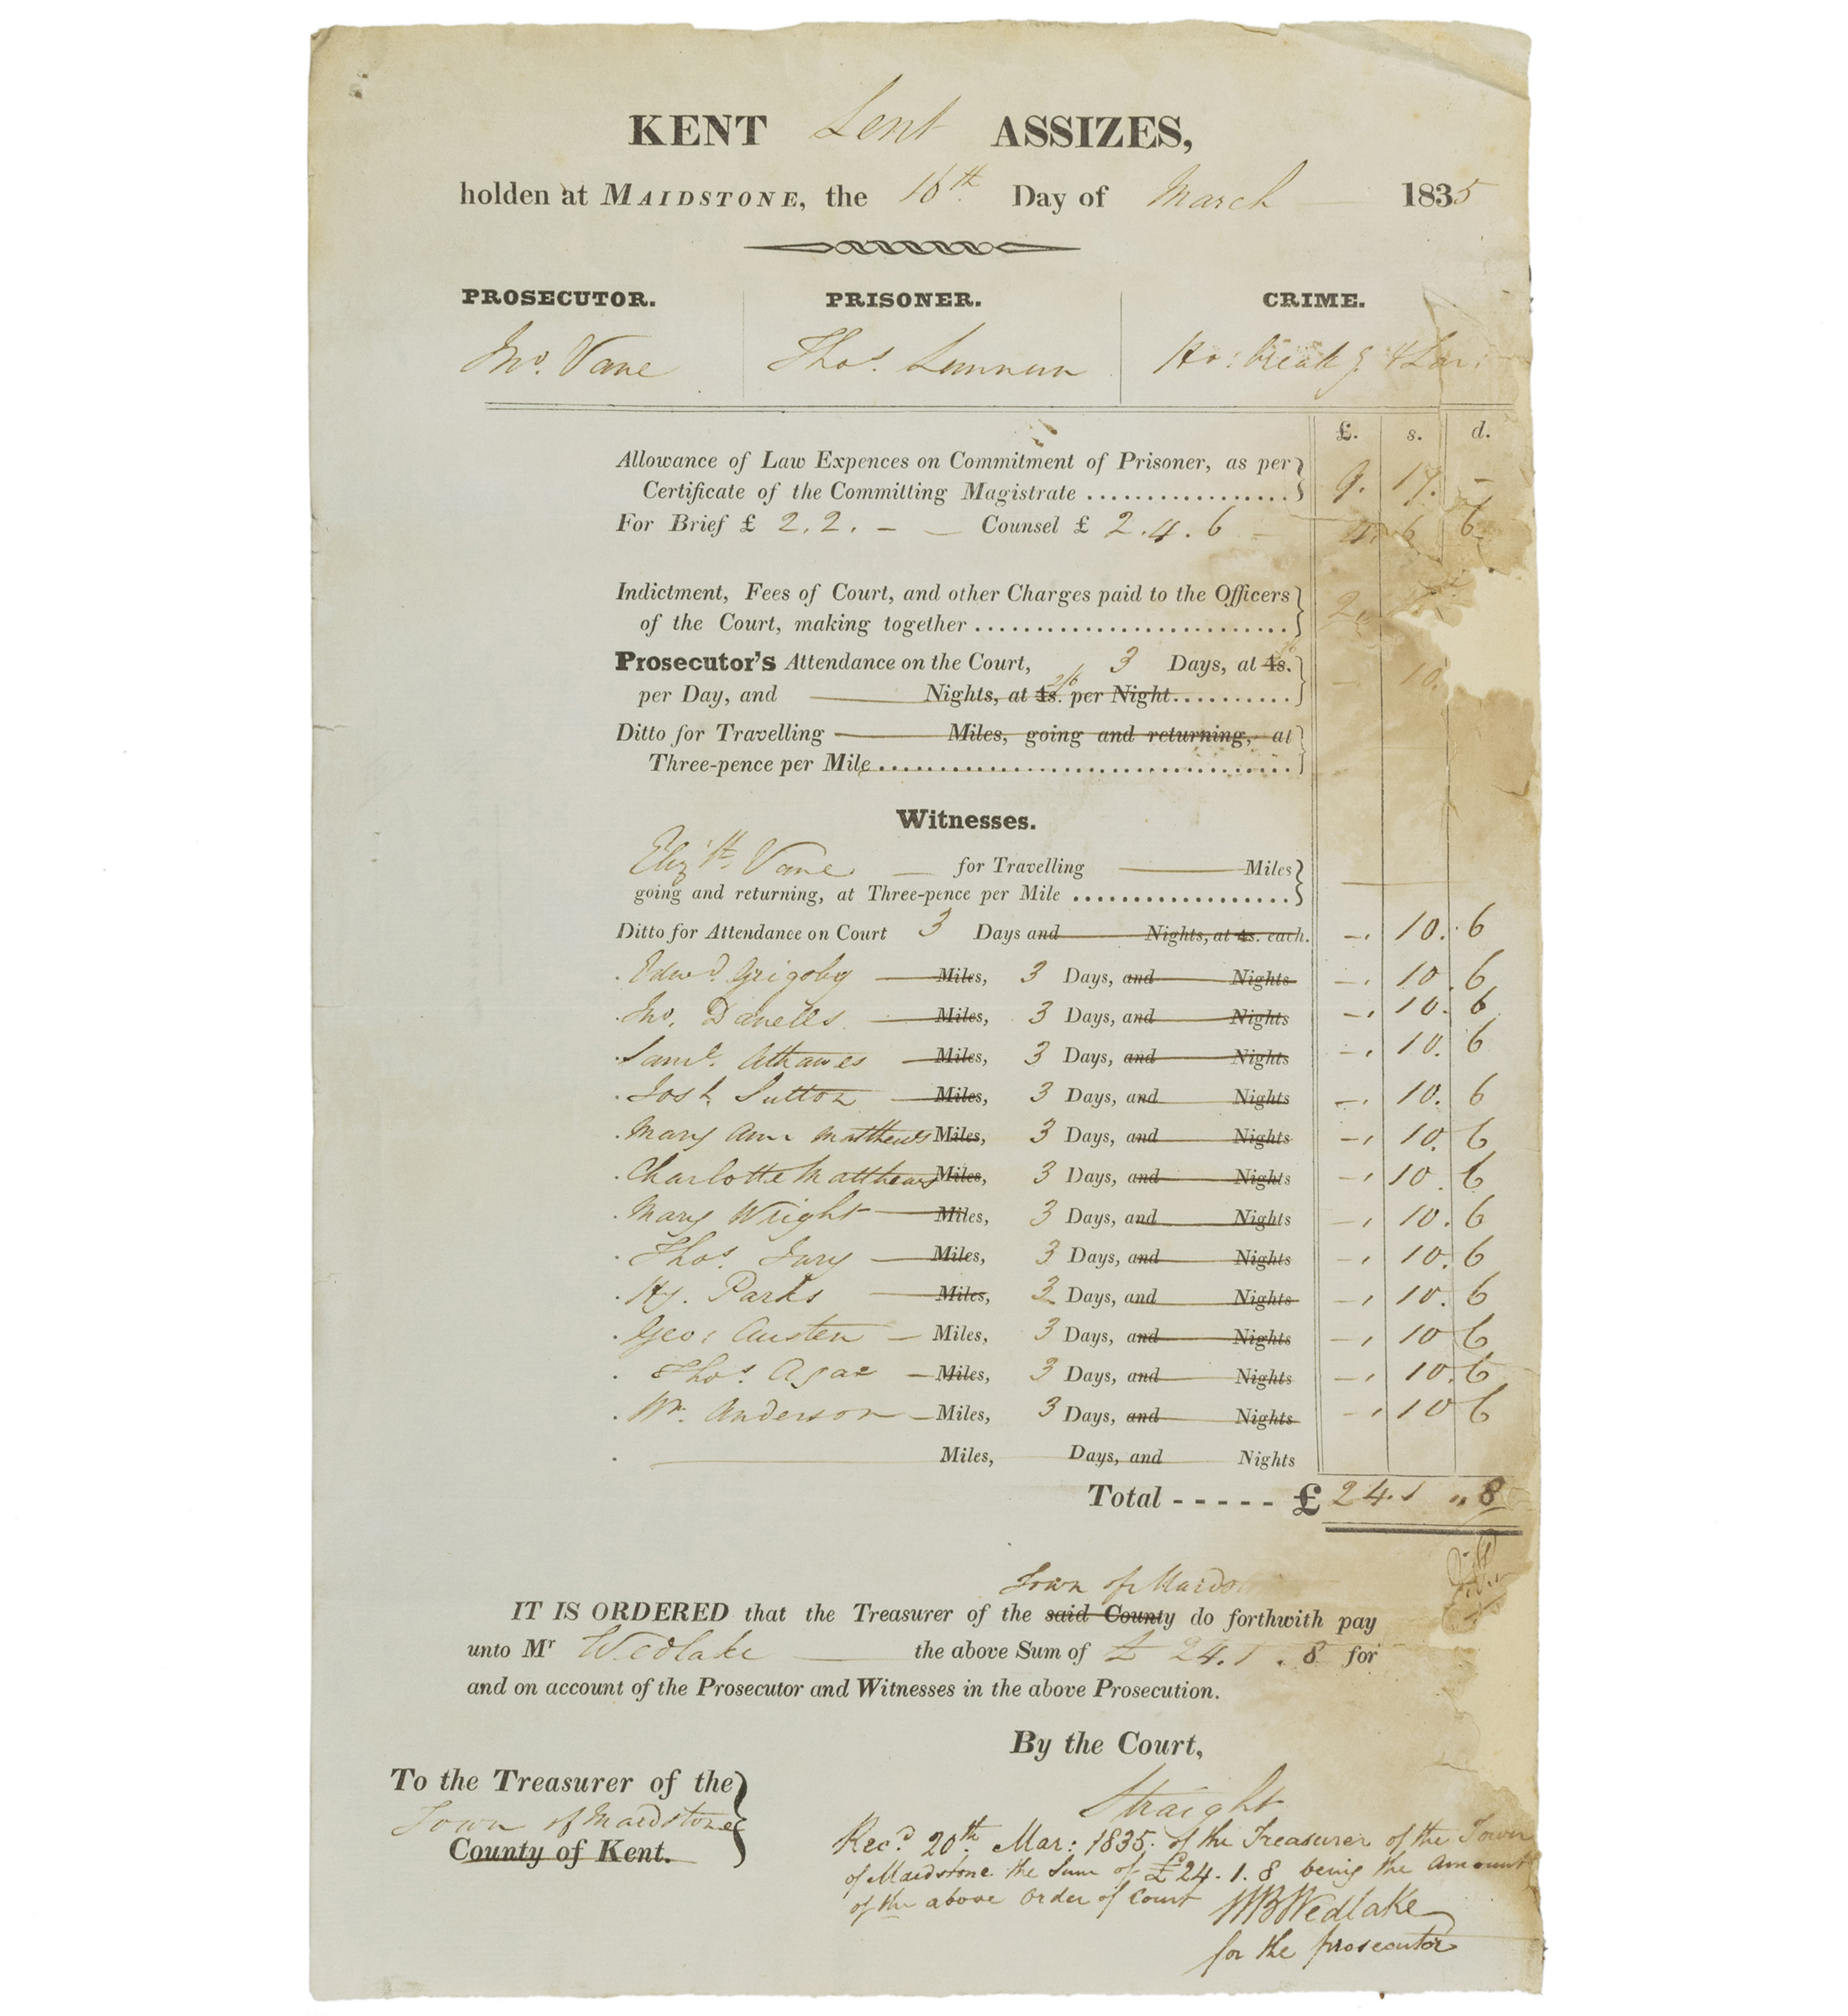 KENT Lent ASSIZES,
holden at MAIDSTONE, the 16th Day of March 1835
PROSECUTOR. PRISONER. CRIME.
Jno. Vane Thos. Lunnun Ho: break g. & Lar:
£. s. d.
Allowance of Law Expences on Commitment of Prisoner, as per
Certificate of the Committing Magistrate ................. 9. 17. -
For Brief £ 2.2. - - Counsel £ 2.4.6 4. 6 6
Indictment, Fees of Court, and other Charges paid to the Officers
of the Court, making together .......................... 2
Prosecutor's Attendance on the Court, 3 Days, at 4s.
per Day, and Nights, at 4s. per Night.......... - 10.
Ditto for Travelling Miles, going and returning, at
Three-pence per Mile..................................
Witnesses.
Elizth. Vane — for Travelling Miles
going and returning, at Three-pence per Mile ..................
Ditto for Attendance on Court 3 Days and Nights, at 4s. each. -. 10. 6
Edwd. Grigsby Miles, 3 Days, and Nights -. 10. 6
Jno. Daniells Miles, 3 Days, and Nights -. 10. 6
Saml. Athawes Miles, 3 Days, and Nights -. 10. 6
Josh. Sutton Miles, 3 Days, and Nights -. 10. 6
Mary Ann Matthews Miles, 3 Days, and Nights -. 10. 6
Charlotte Matthews Miles, 3 Days, and Nights -. 10. 6
Mary Wright Miles, 3 Days, and Nights -. 10. 6
Thos. Jury Miles, 3 Days, and Nights -. 10. 6
Hy. Parks Miles, 3 Days, and Nights -. 10. 6
Geo: Austen Miles, 3 Days, and Nights -. 10 6
Thos. Agar Miles, 3 Days, and Nights -. 10. 6
Wm. Anderson Miles, 3 Days, and Nights -. 10 6
Miles, Days, and Nights
Total ----- £ 24. 1 " 8
Town of Maidsto
IT IS ORDERED that the Treasurer of the said County do forthwith pay
unto Mr Wedlake the above Sum of £ 24. 1. 8 for
and on account of the Prosecutor and Witnesses in the above Prosecution.
By the Court,
Straight
To the Treasurer of the
Town of Maidstone
County of Kent.
Recd. 20th. Mar: 1835. of the Treasurer of the Town
of Maidstone the Sum of £24. 1. 8 being the Amount
of the above Order of Court WB Wedlake
for the prosecutor